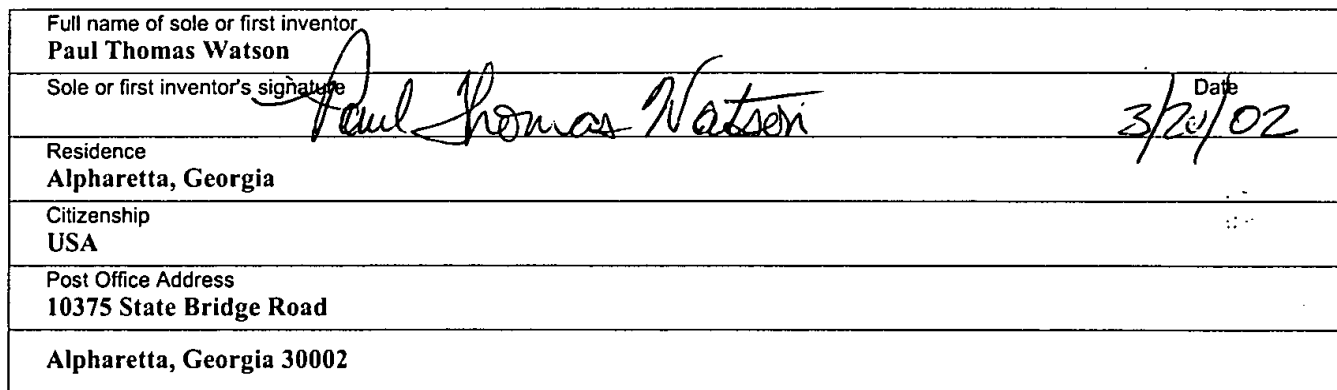 Full name of sole or first inventor
Paul Thomas Watson
Sole or first inventor's signature
Paul Thomas Watson
Date
3/20/02
Residence
Alpharetta, Georgia
Citizenship
USA
Post Office Address
10375 State Bridge Road
Alpharetta, Georgia 30002